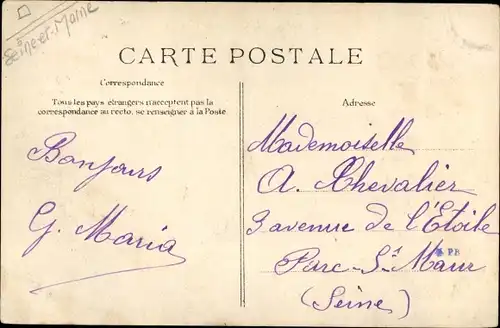 Seine-et-Marne
CARTE POSTALE
Correspondance
Tous les pays étrangers n'acceptent pas la
correspondance au recto, se renseigner à la Poste
Bonjours
G. Maria
Adresse
Mademoiselle
A. Chevalier
3 avenue de l'Etoile
Parc-St Maur
(Seine)
PB